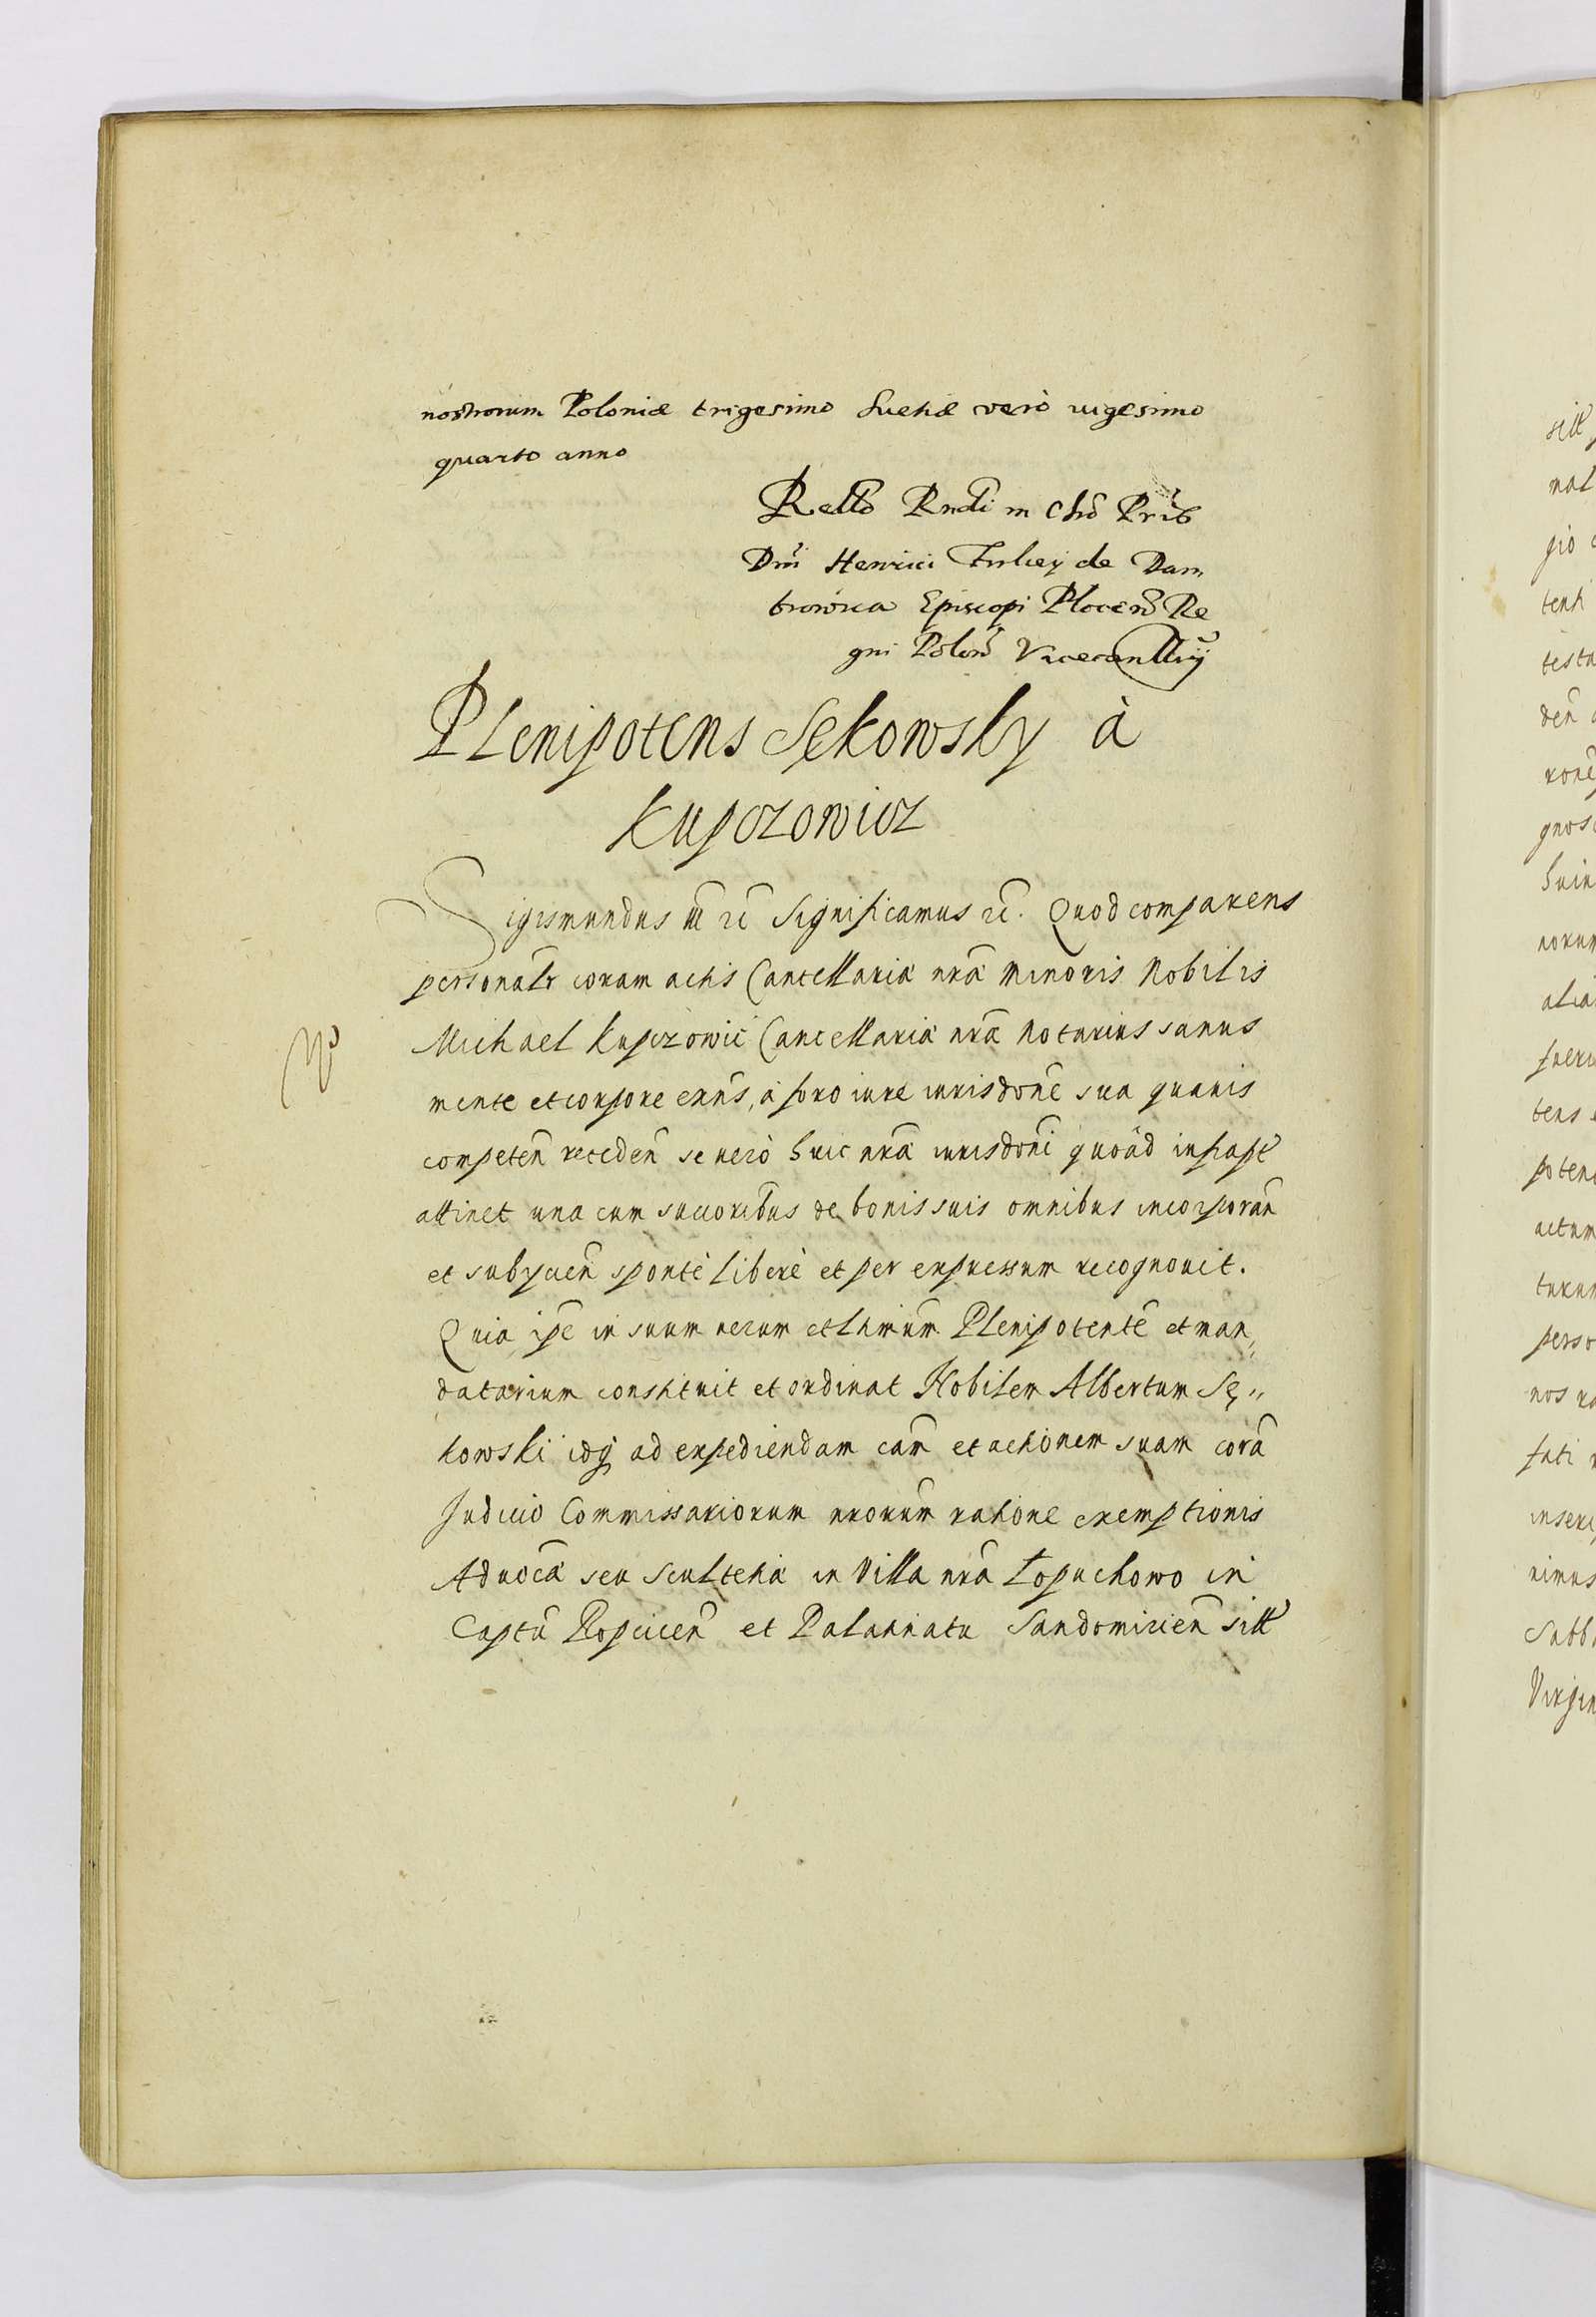 nostrorum Poloniæ trigesimo Suetiæ verò vigesimo
quarto anno
Rello Rndi in Chō Prīs
Dnī Henrici Firley de Dam
browica Episcopi Plocen Re
gni Polon Vicecancellrij
Plenipotens Sękowsky à
Kupczowicz
Sigismundus III rc Significamus rc. Quod comparens
personalr coram actis Cancellariæ nrā Minoris Nobilis
Michael Kupczowic Cancellariæ nrā Notarius sanus
mente et corpore exns, à foro iure iurisdone sua quauis
competen receden se uerò huic nrā iurisdoni quoàd infrapt
attinet una cum succoribus de bonis suis omnibus incorporan
et subycien spontè liberè et per expressum recognouit.
Quia ipe in suum uerum et ltimum Plenipotente et man„
datarium constituit et ordinat Nobilem Albertum Sę„
kowski idq ad expediendam cam et actionem suam corā
Judicio Commissariorum nrorum ratione exemptionis
Aduocā seu Scultetiæ in Villa nrā Łopuchowo in
Captū Ropcicen et Palatinatu Sandomirien sitt
sitt
nal
gio
tenti
testa
den
rone
gnos
huiu
norum
alia
fueri
tens
poten
actum
turum
perso
nos ra
fati
inseri
nimus
Sabb
Virgin